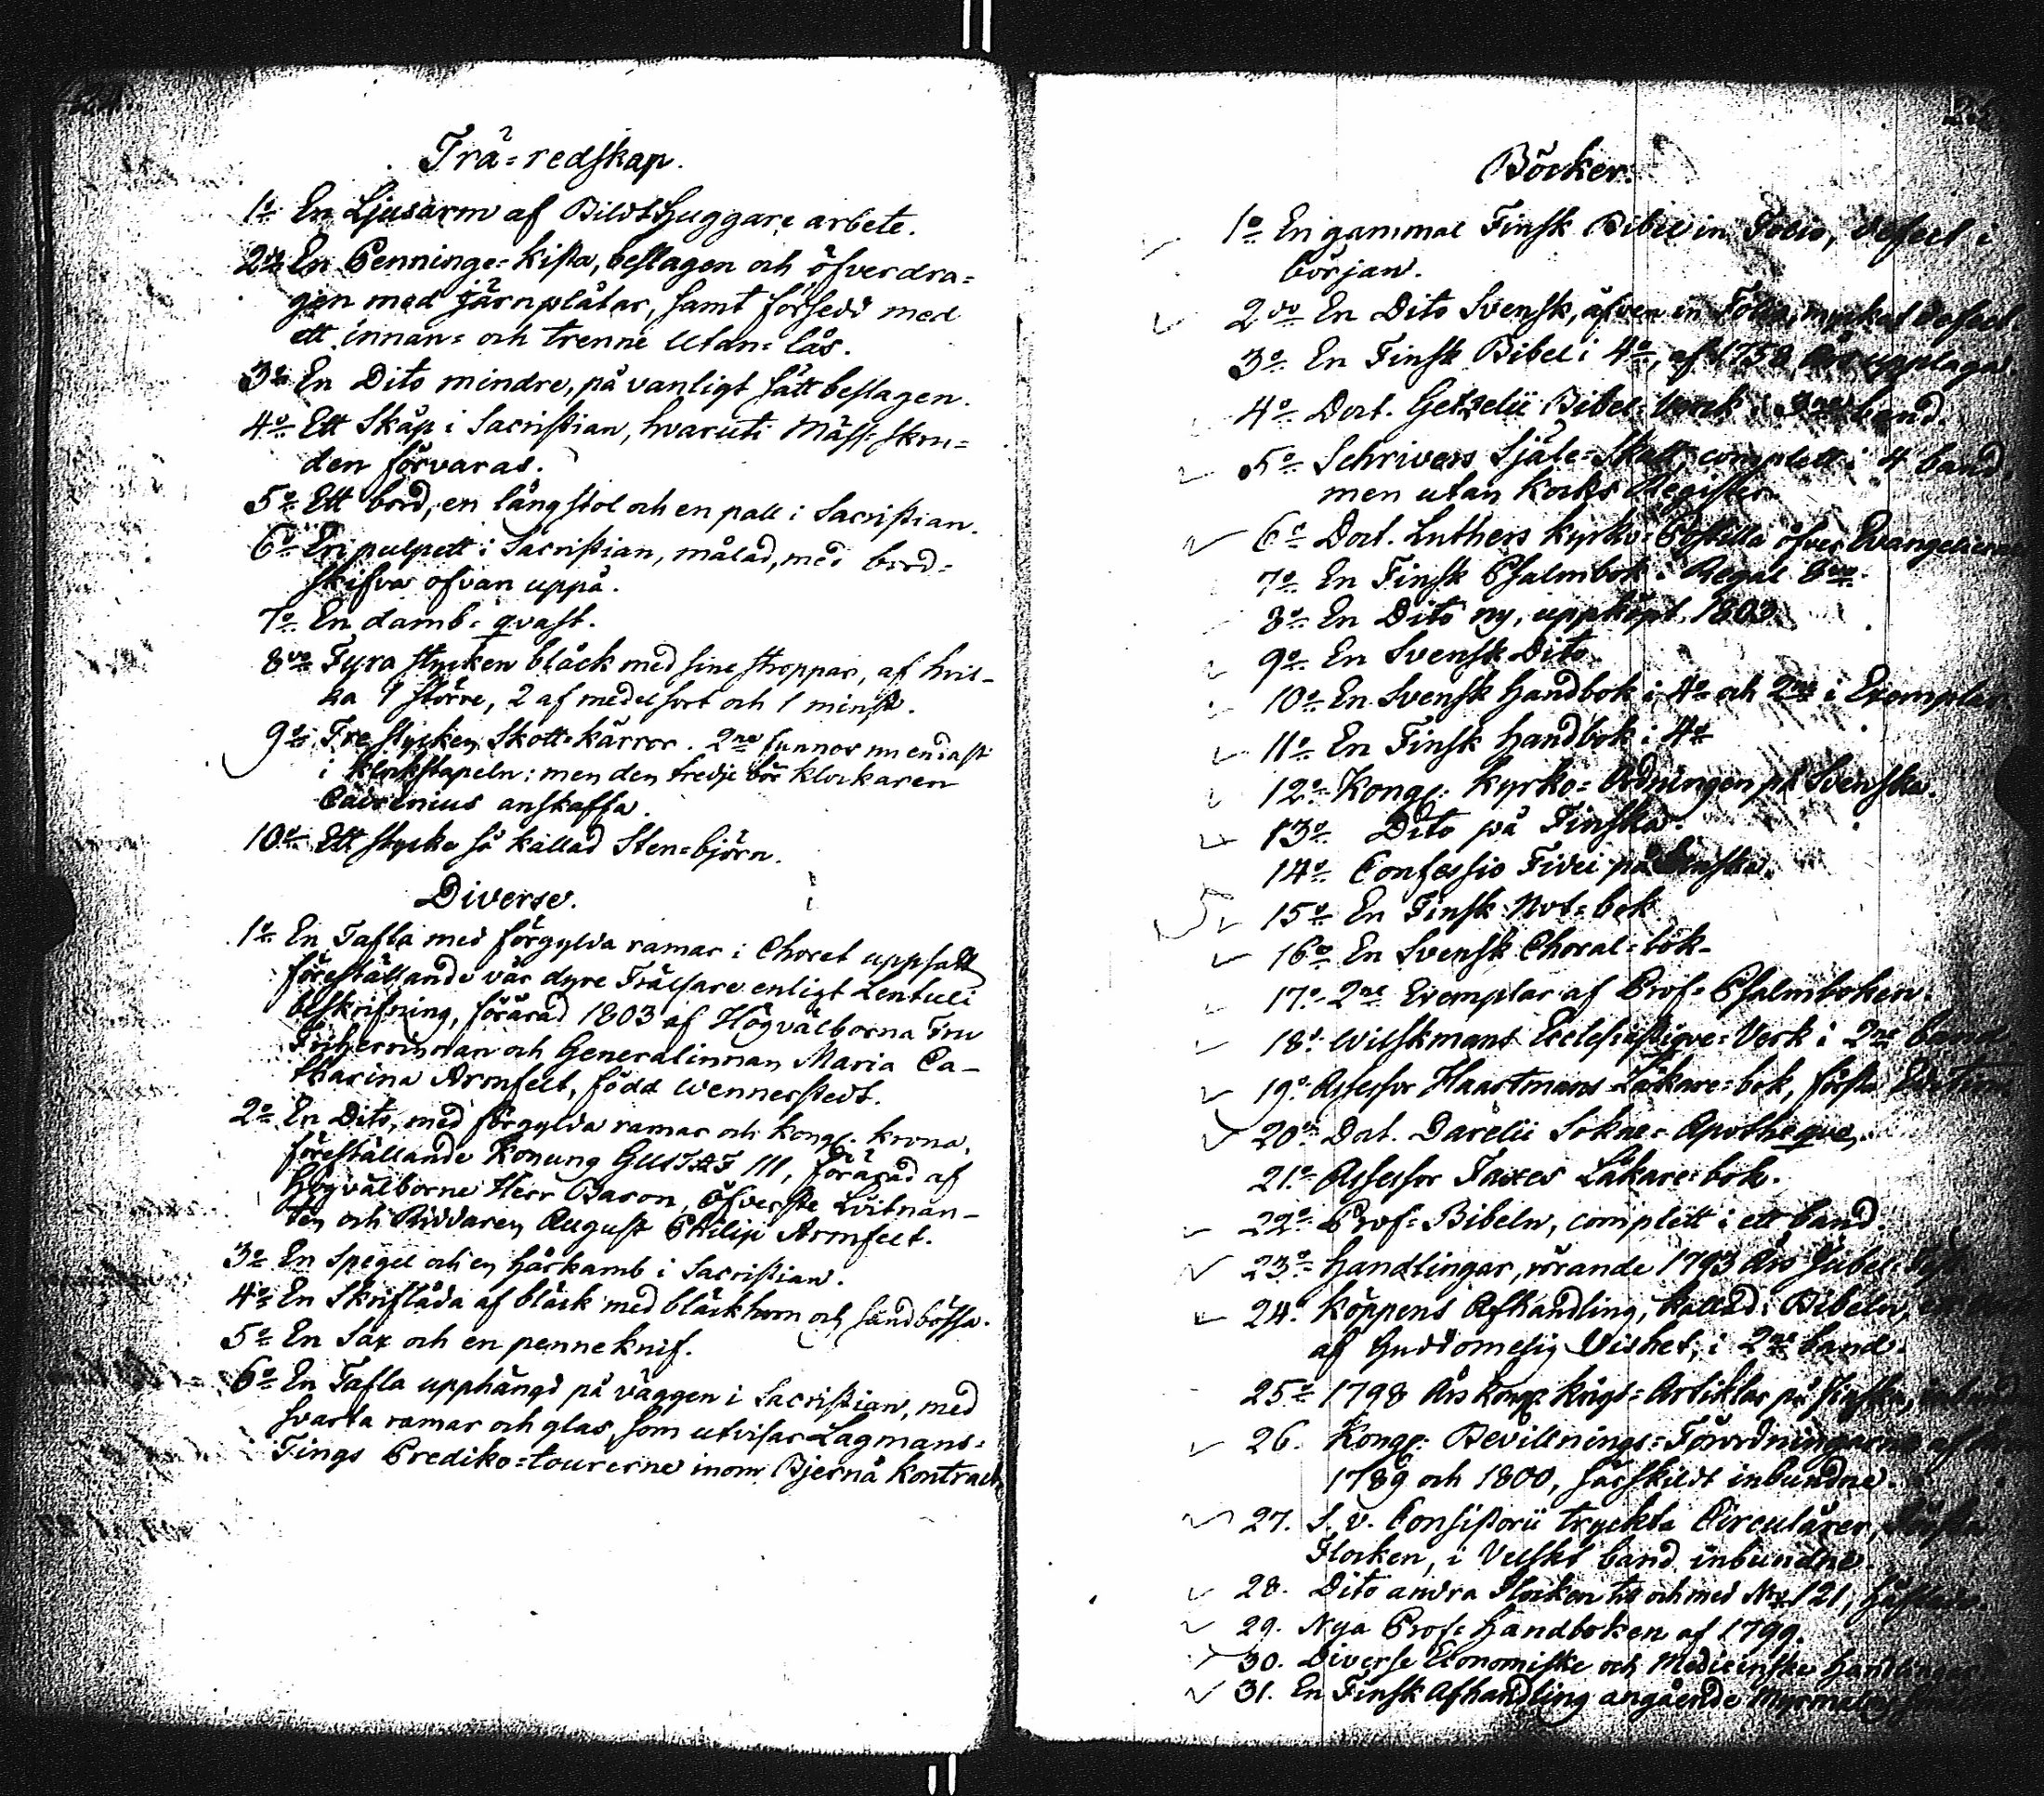 Trä-redskap.
1o En Ljusarm af Bildthuggare arbete.
2do En Penninge-kista, beslagen och öfverdra-
gen med järnplåtar, samt försedd med
ett innan- och trenne Utan-lås.
3o En Dito mindre, på vanligt sätt beslagen.
4o Ett Skåp i Sacristian, hvaruti Mäss-skru-
den förvaras.
5o Ett bord, en långstol och en pall i Sacristian.
6o En pulpett i Sacristian, målad, med bord-
skifva ofvan uppå.
7o En damb-qvast.
8vo Fyra stycken bläck med sine stroppar, af hvil-
ka 1 större, 2 af medelsort och 1 minst.
9o Tre stycken Skott-kärror. 2ne finnas nu endast
i klockstapeln: men den tredje bör klockaren
anskaffa.
10o Ett stycke så kallad Sten-björn.
Diverse.
1o En Tafla med förgylda ramar i Choret uppsatt
föreställande vår dyre Frälsare enligt Lentuli
beskrifning, förärad 1803 af Högvälborna Fru
Friherrinnan och Generalinnan Maria Ca-
tharina Armfelt, född Wennerstedt.
2o En Dito, med förgylda ramar och Kongl. krona,
föreställande Konung GUSTAF III, förärad af
Högvälborne Herr Baron, Öfverste Löitnan-
ten och Riddaren August Philip Armfelt.
3o En Spegel och en hårkamb i Sacristian.
4o En Skriflåda af bläck med bläckhorn och sandbössa.
5o En Sax och en penneknif.
6o En Tafla upphängd på väggen i Sacristian, med
svarta ramar och glas, som utvisar Lagmans-
Tings Prediko-tourerne inom Bjernå Kontract
Böcker.
1o En gammal Finsk Bibel in Folio, defect i
början.
2do En Dito Svensk, äfven in Folio, mycket defect.
3o En Finsk Bibel i 4o, af 1758 Års upplaga
4o Doct. Getzelii Bibel-Verk i band.
5o Schrivers Själe-Skatt, complett i 4 band,
men utan Register.
6o Doct. Luthers Kyrko-Postilla öfver Evangelierne
7o En Finsk Psalmbok i Regal 8vo.
8o En Dito ny, uppköpt 1803.
9o En Svensk Dito
10o En Svensk Handbok i 4o och 2ne Exemplar.
11o En Finsk Handbok i 4o
12o Kongl. Kyrko-Ordningen på Svenska.
13o Dito på Finska.
14o Confessio Fidei på
15o En Finsk Not-bok
16o En Svensk Choral-bok
17o 2ne Exemplar af Prof-Psalmboken.
18o Wilskmans Ecclesiastique-Verk i 2ne band
19o Assessor Haartmans Läkare-bok, första
20o Doct. Darelii Sokne-Apotheque,
21o Assessor Faxes Läkare-bok.
22o Prof-Bibeln, complett i ett band.
23o Handlingar, rörande 1793 Års Jubel-
24o Köppens Afhandling, kallad: Bibeln,
af Guddomelig Vishet, i 2ne band.
25o 1798 Års Kongl. Krigs-Artiklar på Finska,
26. Kongl. Bevillnings-Förordningarne af
1789 och 1800, särskildt inbundne.
27. S. V. Consistorii tryckta Circulärer, första
Flocken, i Velskt band inbundne.
28. Dito andra Flocken till och med No 121, häftade.
29. Nya Prof-Handboken af 1799.
30. Diverse Economiske och Medicinske Handlingar
31. En Finsk Afhandling angående